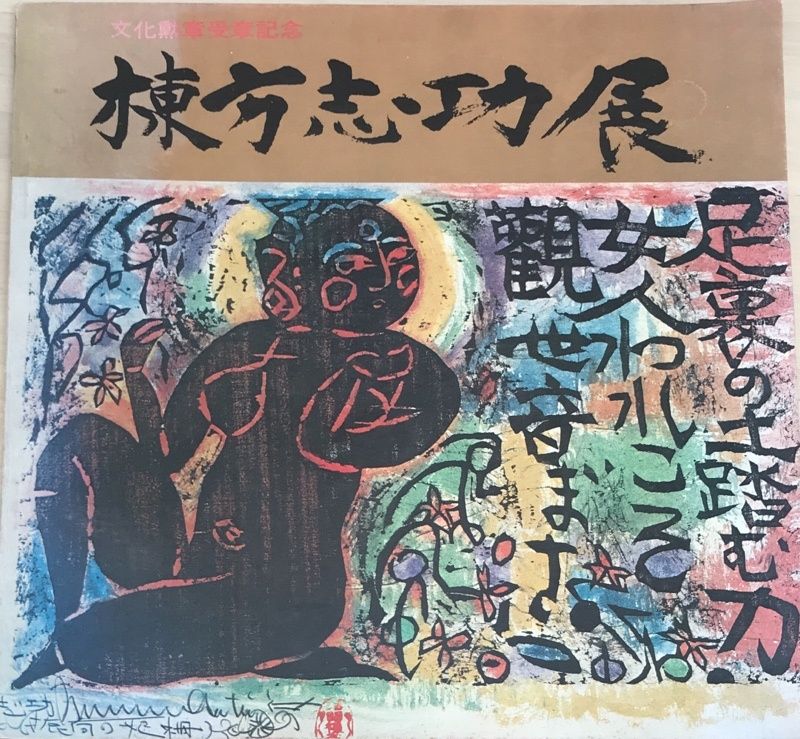 文化勲章受章記念
棟方志功展
足裏の土踏む力
女人われこそ
觀世音